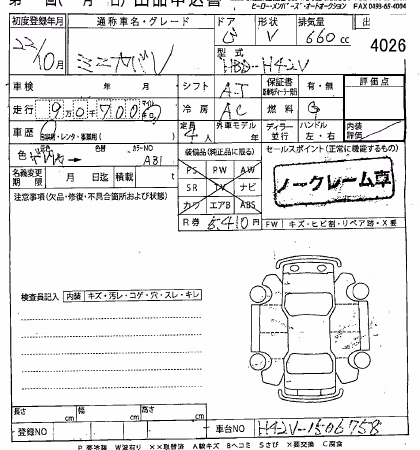 ヒーローメンバーズ・オートオークション FAX 0493-65-4004
初度登録年月 通称車名・グレード ドア 形状 排気量 出
22/10月 ミニキャブV 5 V 660cc
型式
HBD-H42V
4026
車検 年 月 シフト AT 保証書 有・無 評価点
走行 9万0700 冷房 AC 燃料 G
車歴 自家用・レンタ・事業用 定員 4人 外車モデル 年 ディラー 並行 ハンドル 左・右 内装評価
色 色替 カラーNO A31 装備品(純正品に限る) セールスポイント(正常に機能するもの)
名義変更期限 月 日迄 積載 t PS PW AW
SR TV ナビ
カワ エアB ABS
ノークレーム車
注意事項(欠品・修復・不具合箇所および状態)
R券 8,410円 FW キズ・ヒビ割・リペア跡・X要
検査員記入 内装 キズ・汚レ・コゲ・穴・スレ・キレ
長さ cm 幅 cm 高さ cm
登録NO 車台NO H42V-1506758
P 要塗装 W波有り XX取替済 A線キズ Bヘコミ Sさび X要交換 C腐食